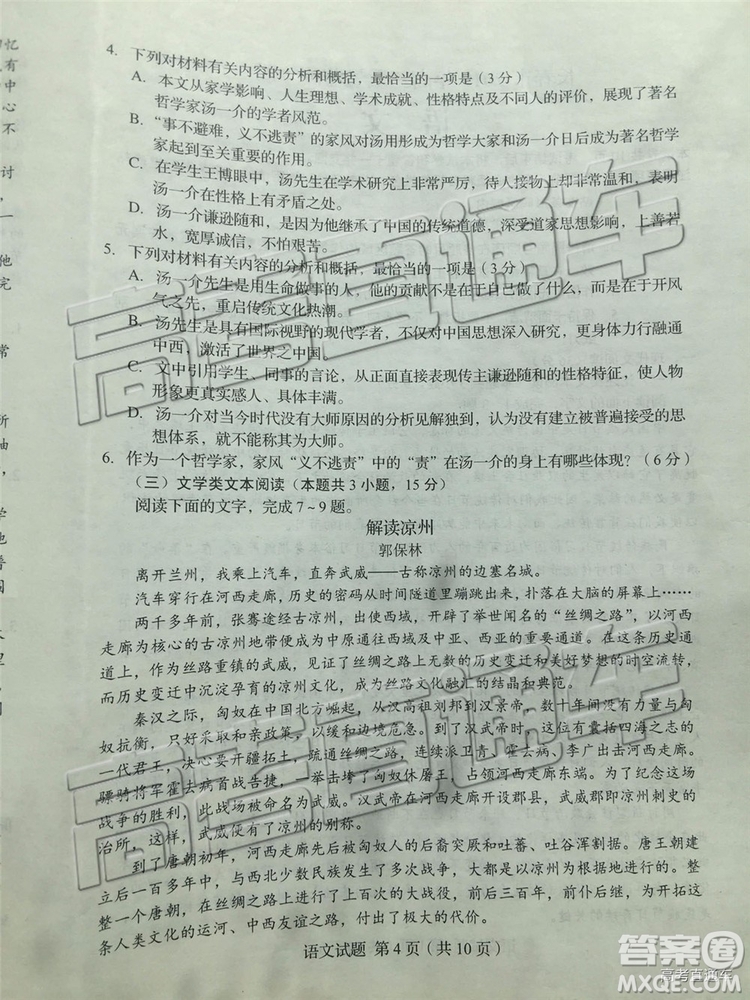 4. 下列对材料有关内容的分析和概括，最恰当的一项是（3分）
A. 本文从家学影响、人生理想、学术成就、性格特点等不同方面的评价，展现了著名
哲学家汤一介的学者风范。
B. “事不避难，义不逃责”的家风对汤用彤成为哲学大家和汤一介日后成为著名哲学
家起到至关重要的作用。
C. 在学生王博眼中，汤先生在学术研究上非常严厉，待人接物上却非常温和，表明
汤一介在性格上有矛盾之处。
D. 汤一介谦逊随和，是因为他继承了中国的传统道德，深受道家思想影响，上善若
水，宽厚诚信，不怕艰苦。
5. 下列对材料有关内容的分析和概括，最恰当的一项是（3分）
A. 汤一介先生是用生命做事的人，他的可贵不在于自己做了什么，而是在于开风
气之先，重启传统文化热潮。
B. 汤先生是具有国际视野的现代学者，不仅对中国思想深入研究，更身体力行融通
中西，激活了世界之中国
C. 文中引用学生、同事的言论，从正面直接表现传主谦逊随和的性格特征，使人物
形象更真实感人、具体丰满。
D. 汤一介对当今时代没有大师原因的分析见解独到，认为没有建立被普遍接受的思
想体系，就不能称其为大师。
6. 作为一个哲学家，家风“义不逃责”中的“责”在汤一介的身上有哪些体现？（6分）
（三）文学类文本阅读（本题共3小题，15分）
阅读下面的文字，完成7~9题。
解读凉州
郭保林
离开兰州，我乘上汽车，直奔武威——古称凉州的边塞名城。
汽车穿行在河西走廊，历史的密码从时间隧道里蹦跳出来，扑落在大脑的屏幕上……
两千多年前，张骞途经古凉州，出使西域，开辟了举世闻名的“丝绸之路”，以河西
走廊为核心的古凉州地带便成为中原通往西域及中亚、西亚的重要通道。在这条历史通
道上，作为丝路重镇的武威，见证了丝绸之路上无数的历史变迁和美好梦想的时空流转，
而历史变迁中沉淀孕育的凉州文化，成为丝路文化融汇的结晶和典范。
秦汉之际，匈奴在中国北方崛起，从汉高祖刘邦到汉景帝，数十年间没有力量与匈
奴抗衡，只好采取和亲政策，以缓和边境危急。到了汉武帝时，这位有囊括四海之志的
一代君王，决心要开疆拓土，疏通丝绸之路，连续派卫青、霍去病、李广出击河西走廊。
骠骑将军霍去病首战告捷，一举击垮了匈奴休屠王，占领河西走廊东端。为了纪念这场
战争的胜利，此战场被命名为武威。汉武帝在河西走廊开设郡县，武威郡即凉州刺史的
治所，这样，武威便有了凉州的别称。
到了唐朝初年，河西走廊先后被匈奴人的后裔突厥和吐蕃、吐谷浑割据。唐王朝建
整立后100多年，与西北少数民族发生了多次战争，大都是以凉州为根据地展开的。为此，
整个唐朝，在这条走廊上进行了上百次的大战役，前后三百年，前仆后继，为开拓这
条人类文化的运河、中西文化的桥梁，付出了极大的代价。
语文试题 第4页（共10页）
高考直通车
高考直通车
答案卷
MXQE.COM
高考直通车